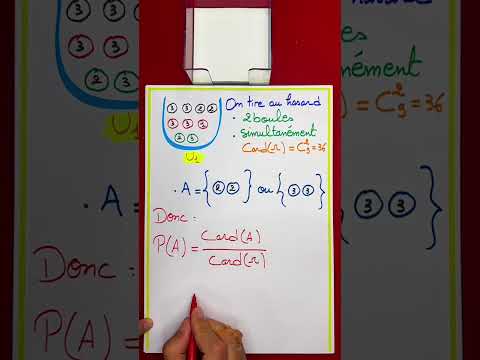 3 3 2 2
3 3 3
2 3
U1
On tire au hasard
. 2 boules
. simultanément
Card(Ω) = C₉² = 36
. A = { 2 2 } ou { 3 3 }
Donc :
P(A) = Card(A)
Card(Ω)
3 3
3 3
2 3
= C₉² = 36
3 3 }
Donc :
P(A)